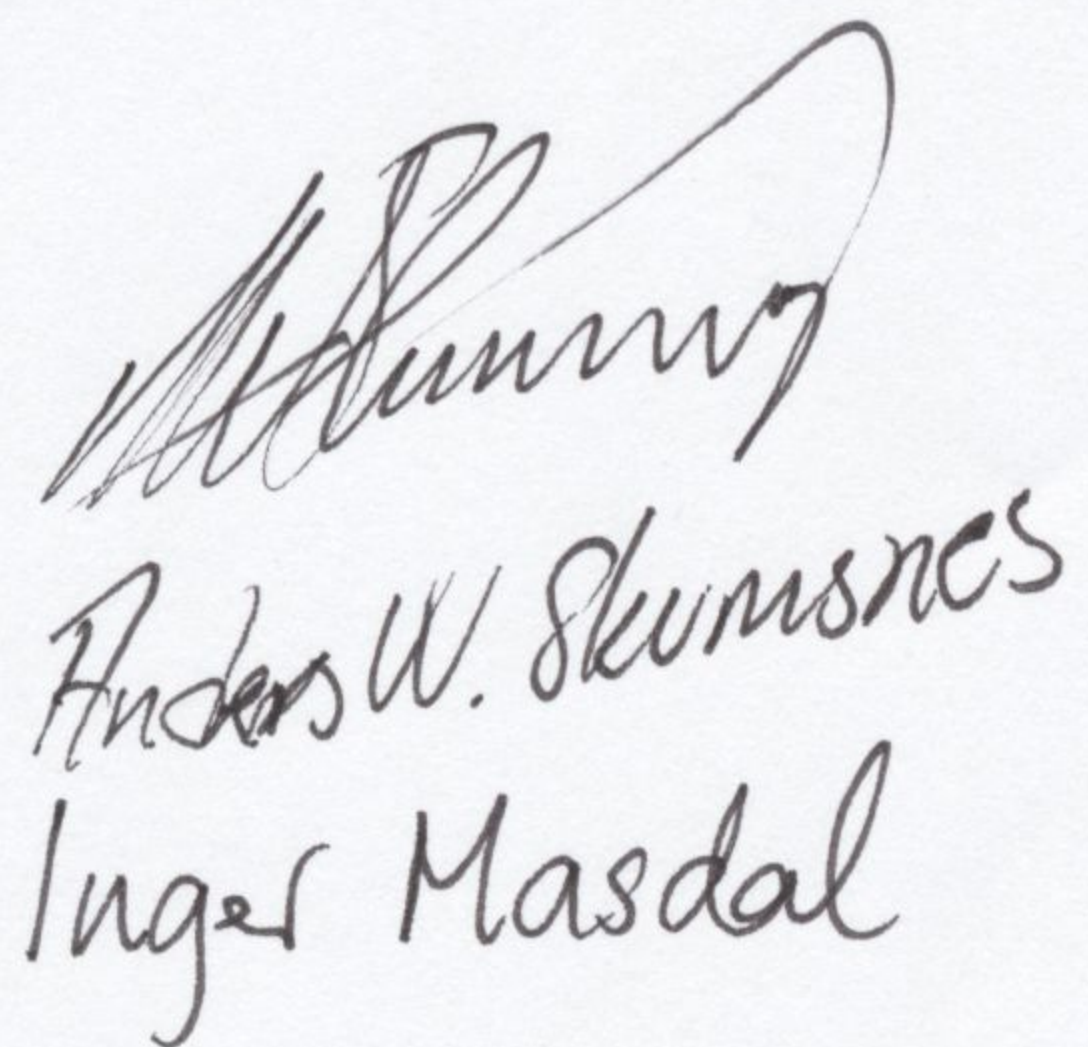 Anders W. Skumsnes
Inger Masdal